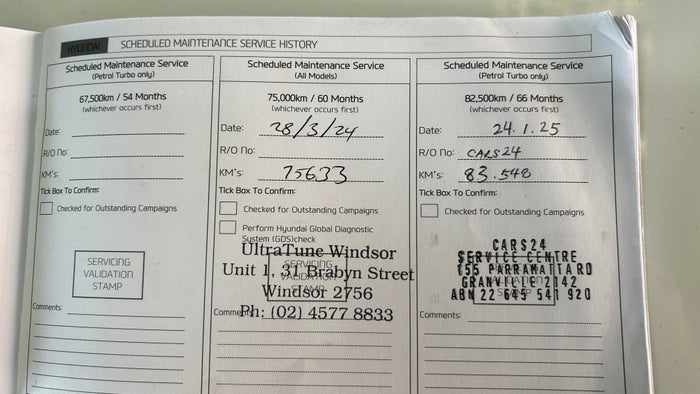 HYUNDAI SCHEDULED MAINTENANCE SERVICE HISTORY
Scheduled Maintenance Service
(Petrol Turbo only)
67,500km / 54 Months
(whichever occurs first)
Date:
R/O No:
KM's:
Tick Box To Confirm:
Checked for Outstanding Campaigns
SERVICING
VALIDATION
STAMP
Comments:
Scheduled Maintenance Service
(All Models)
75,000km / 60 Months
(whichever occurs first)
Date: 28/3/24
R/O No:
KM's: 75633
Tick Box To Confirm:
Checked for Outstanding Campaigns
Perform Hyundai Global Diagnostic
System (GDS)check
UltraTune Windsor
SERVICING
Unit 1, 31 Brabyn Street
VALIDATION
STAMP
Windsor 2756
Comments:
Ph: (02) 4577 8833
Scheduled Maintenance Service
(Petrol Turbo only)
82,500km / 66 Months
(whichever occurs first)
Date: 24.1.25
R/O No: CARS24
KM's: 83.548
Tick Box To Confirm:
Checked for Outstanding Campaigns
CARS24
SERVICE CENTRE
155 PARRAMATTA RD
GRANVILLE 2142
ABN 22 645 541 920
Comments: